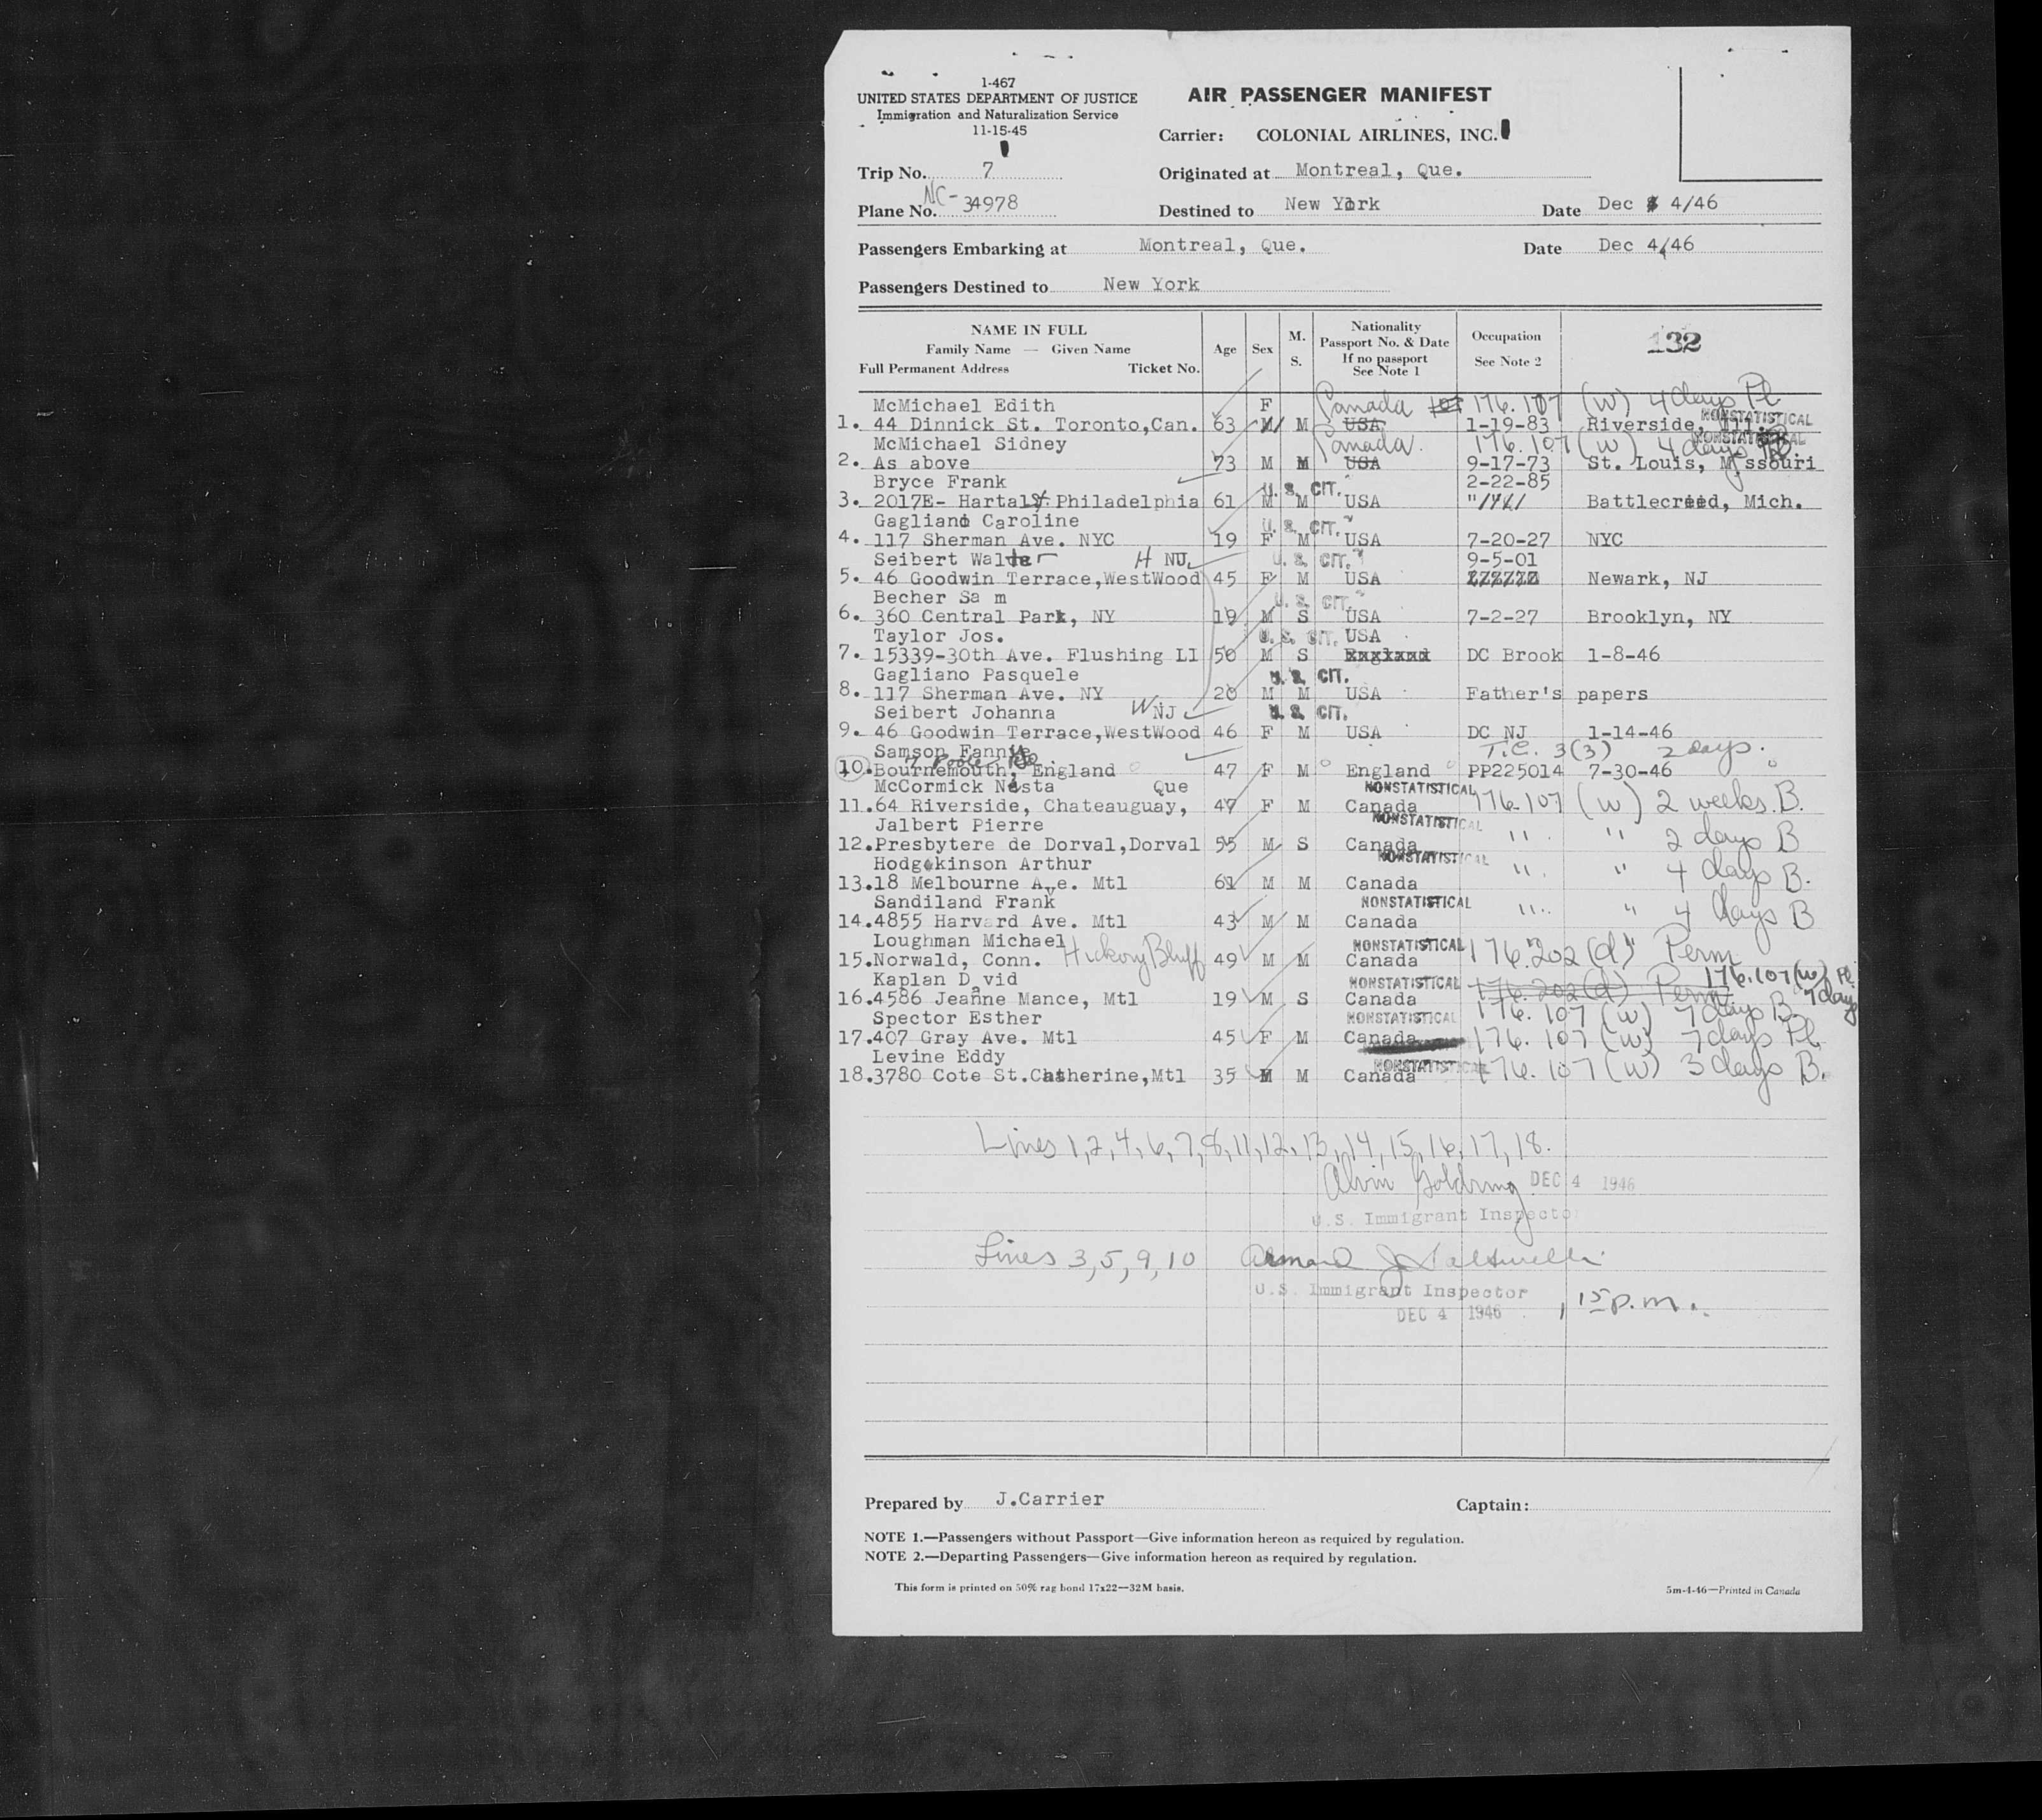 1-467
UNITED STATES DEPARTMENT OF JUSTICE
Immigration and Naturalization Service
11-15-45
AIR PASSENGER MANIFEST
Carrier: COLONIAL AIRLINES, INC.
Trip No. 7
Originated at Montreal, Que.
Plane No. NC-34978
Destined to New York
Date Dec 4/46
Passengers Embarking at Montreal, Que.
Date Dec 4/46
Passengers Destined to New York
NAME IN FULL
Family Name — Given Name
Full Permanent Address Ticket No.
Age
Sex
M. S.
Nationality
Passport No. & Date
If no passport
See Note 1
Occupation
See Note 2
132
McMichael Edith F Canada 176.107 (W) 4 days Pl
NONSTATISTICAL
1. 44 Dinnick St. Toronto,Can. 63 M M USA 1-19-83 Riverside, Ill.
McMichael Sidney Canada. 176.107 (W) 4 days
NONSTATISTICAL
2. As above 73 M M USA 9-17-73 St. Louis, M ssouri
Bryce Frank U. S. CIT. 2-22-85
3. 2017E- Hartal St. Philadelphia 61 M M USA Battlecreed, Mich.
Gagliano Caroline U. S. CIT.
4. 117 Sherman Ave. NYC 19 F M USA 7-20-27 NYC
Seibert Walter H NJ U. S. CIT. 9-5-01
5. 46 Goodwin Terrace,WestWood 45 F M USA Newark, NJ
Becher Sa m U. S. CIT.
6. 360 Central Park, NY 19 M S USA 7-2-27 Brooklyn, NY
Taylor Jos. U. S. CIT. USA
7. 15339-30th Ave. Flushing LI 50 M S England DC Brook 1-8-46
Gagliano Pasquele U. S. CIT.
8. 117 Sherman Ave. NY 20 M M USA Father's papers
Seibert Johanna W NJ U. S. CIT.
9. 46 Goodwin Terrace,WestWood 46 F M USA DC NJ 1-14-46
Samson Fannie T.C. 3(3) 2 days.
7 Poole
10. Bournemouth, England 47 F M England PP225014 7-30-46
McCormick Nesta Que NONSTATISTICAL
11.64 Riverside, Chateauguay, 47 F M Canada 176.107 (W) 2 weeks. B.
Jalbert Pierre NONSTATISTICAL
12.Presbytere de Dorval,Dorval 55 M S Canada " " 2 days B
Hodgkinson Arthur NONSTATISTICAL
13.18 Melbourne Ave. Mtl 61 M M Canada " " 4 days B.
Sandiland Frank NONSTATISTICAL
14.4855 Harvard Ave. Mtl 43 M M Canada " " 4 days B
Loughman Michael NONSTATISTICAL
15.Norwald, Conn. Hickory Bluff 49 M M Canada 176.202 (d) Perm
Kaplan David NONSTATISTICAL 176.202(d) Perm 176.107(W) Pl. 7 days
16.4586 Jeanne Mance, Mtl 19 M S Canada 176.107 (W) 7 days B.
Spector Esther NONSTATISTICAL
17.407 Gray Ave. Mtl 45 F M Canada 176.107 (W) 7 days Pl
Levine Eddy NONSTATISTICAL
18.3780 Cote St.Catherine,Mtl 35 M M Canada 176.107 (W) 3 days B.
Lines 1,2,4,6,7,8,11,12,13,14,15,16,17,18.
Alvin Goldring DEC 4 1946
U.S. Immigrant Inspecto
Lines 3,5,9,10 Armand J.
U.S. Immigrant Inspector
DEC 4 1946 1 15 p.m.
Prepared by J.Carrier
Captain:
NOTE 1.—Passengers without Passport—Give information hereon as required by regulation.
NOTE 2.—Departing Passengers—Give information hereon as required by regulation.
This form is printed on 50% rag bond 17x22—32M basis.
5m-4-46—Printed in Canada